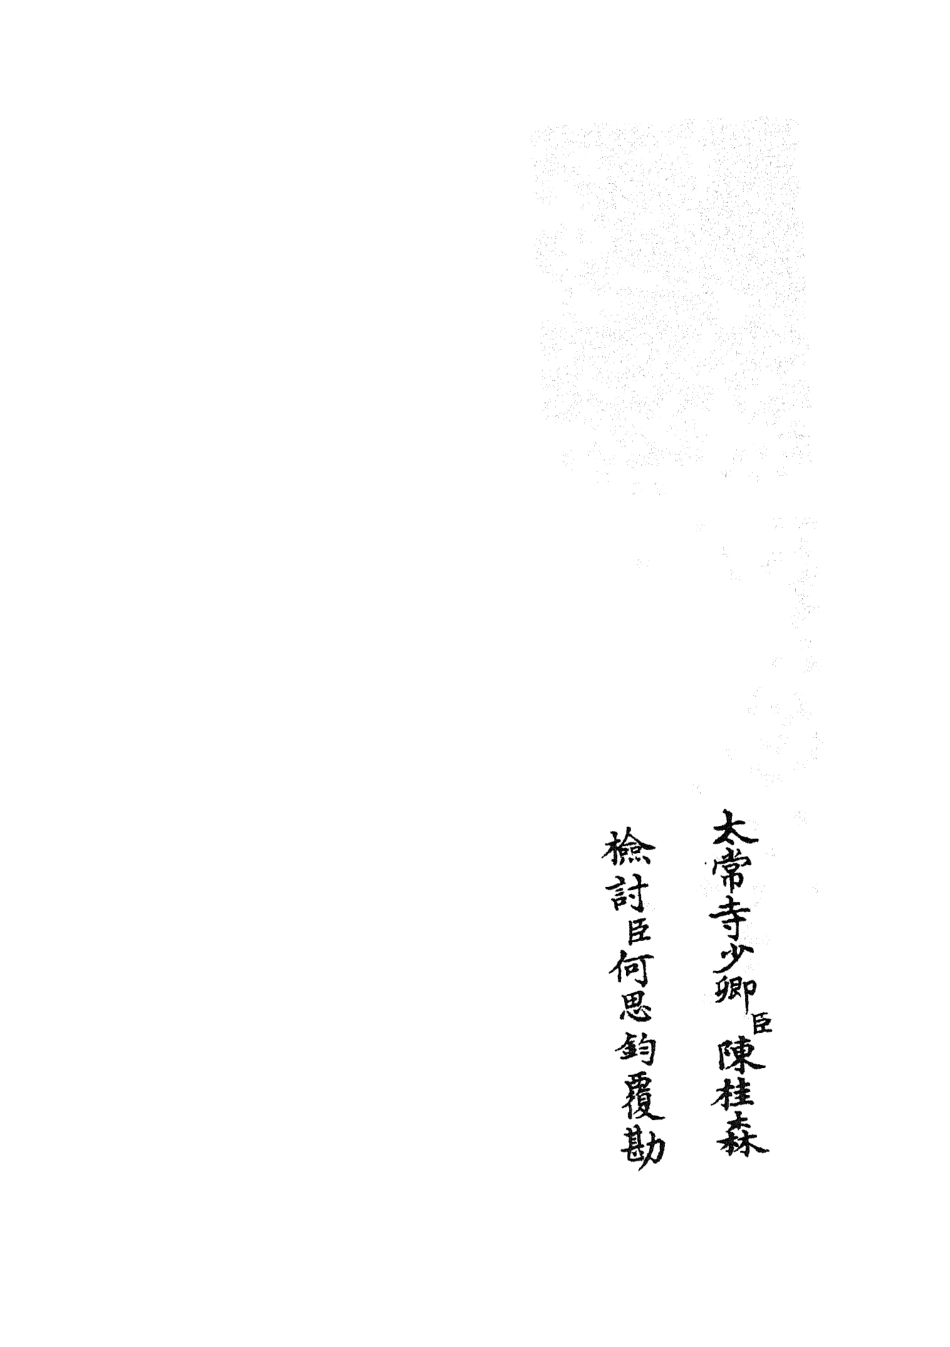 太常寺少卿臣陳桂森
檢討臣何思鈞覆勘